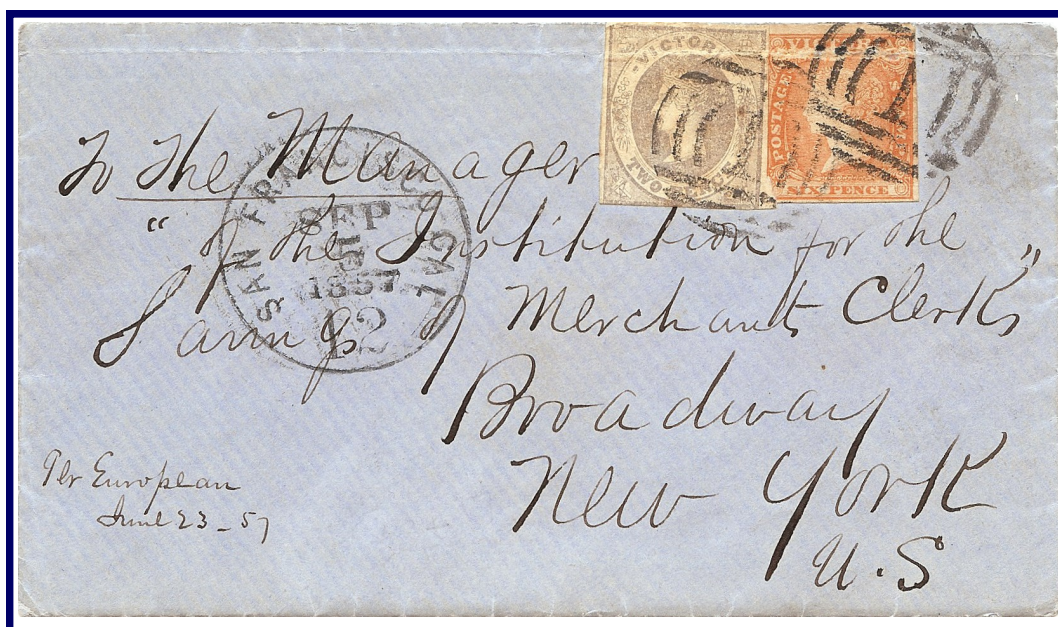 VICTORIA
TWO
VICTORIA
POSTAGE
SIX PENCE
To The Manager
" of the Institution for the
Savings of Merchants Clerks"
Broadway
New York
U.S
SAN FRANCISCO CAL
SEP
5
1857
12
Per European
June 23 - 57